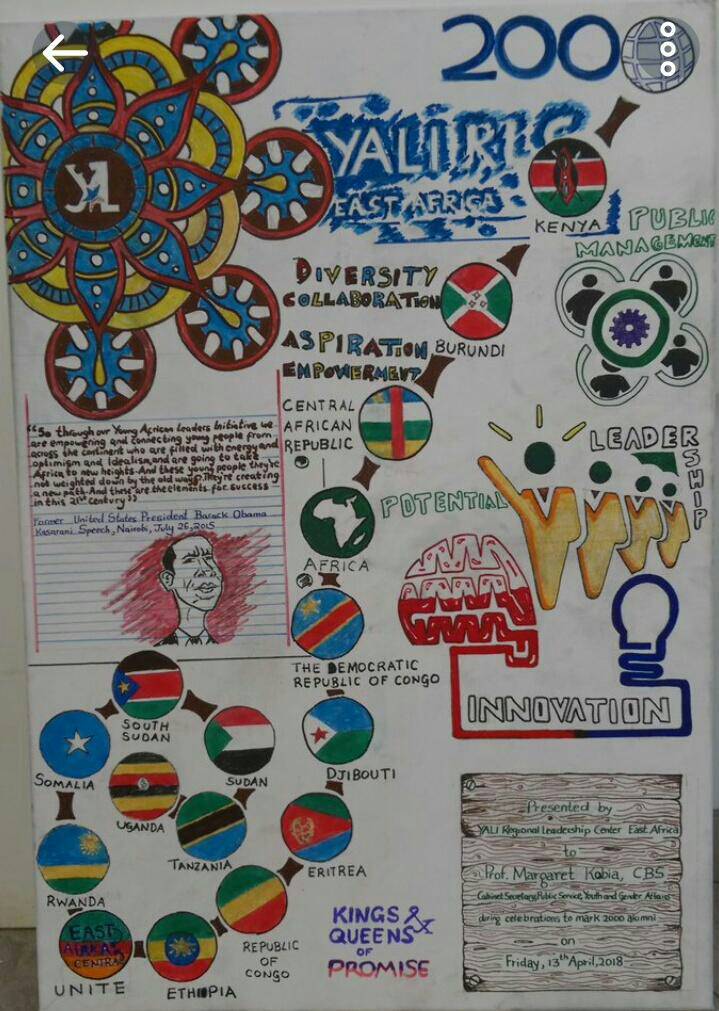 2000
YALI RLC
EAST AFRICA
KENYA
PUBLIC
MANAGEMENT
DIVERSITY
COLLABORATION
ASPIRATION
EMPOWERMENT
BURUNDI
CENTRAL
AFRICAN
REPUBLIC
"So through our Young African Leaders Initiative we
are empowering and connecting young people from
across the continent who are filled with energy and
optimism and idealism, and are going to take
Africa to new heights. And these young people they're
not weighted down by the old ways. They're creating
a new path. And these are the elements for success
in this 21st century"
Former United States President Barack Obama
Kasarani Speech, Nairobi, July 26, 2015
LEADERSHIP
POTENTIAL
AFRICA
THE DEMOCRATIC
REPUBLIC OF CONGO
INNOVATION
SOUTH
SUDAN
SUDAN
DJIBOUTI
SOMALIA
UGANDA
TANZANIA
ERITREA
RWANDA
REPUBLIC
OF
CONGO
EAST
AFRICA
CENTRAL
UNITE
ETHIOPIA
KINGS &
QUEENS
OF
PROMISE
Presented by
YALI Regional Leadership Center East Africa
to
Prof. Margaret Kobia, CBS
Cabinet Secretary, Public Service, Youth and Gender Affairs
during celebrations to mark 2000 alumni
on
Friday, 13th April, 2018